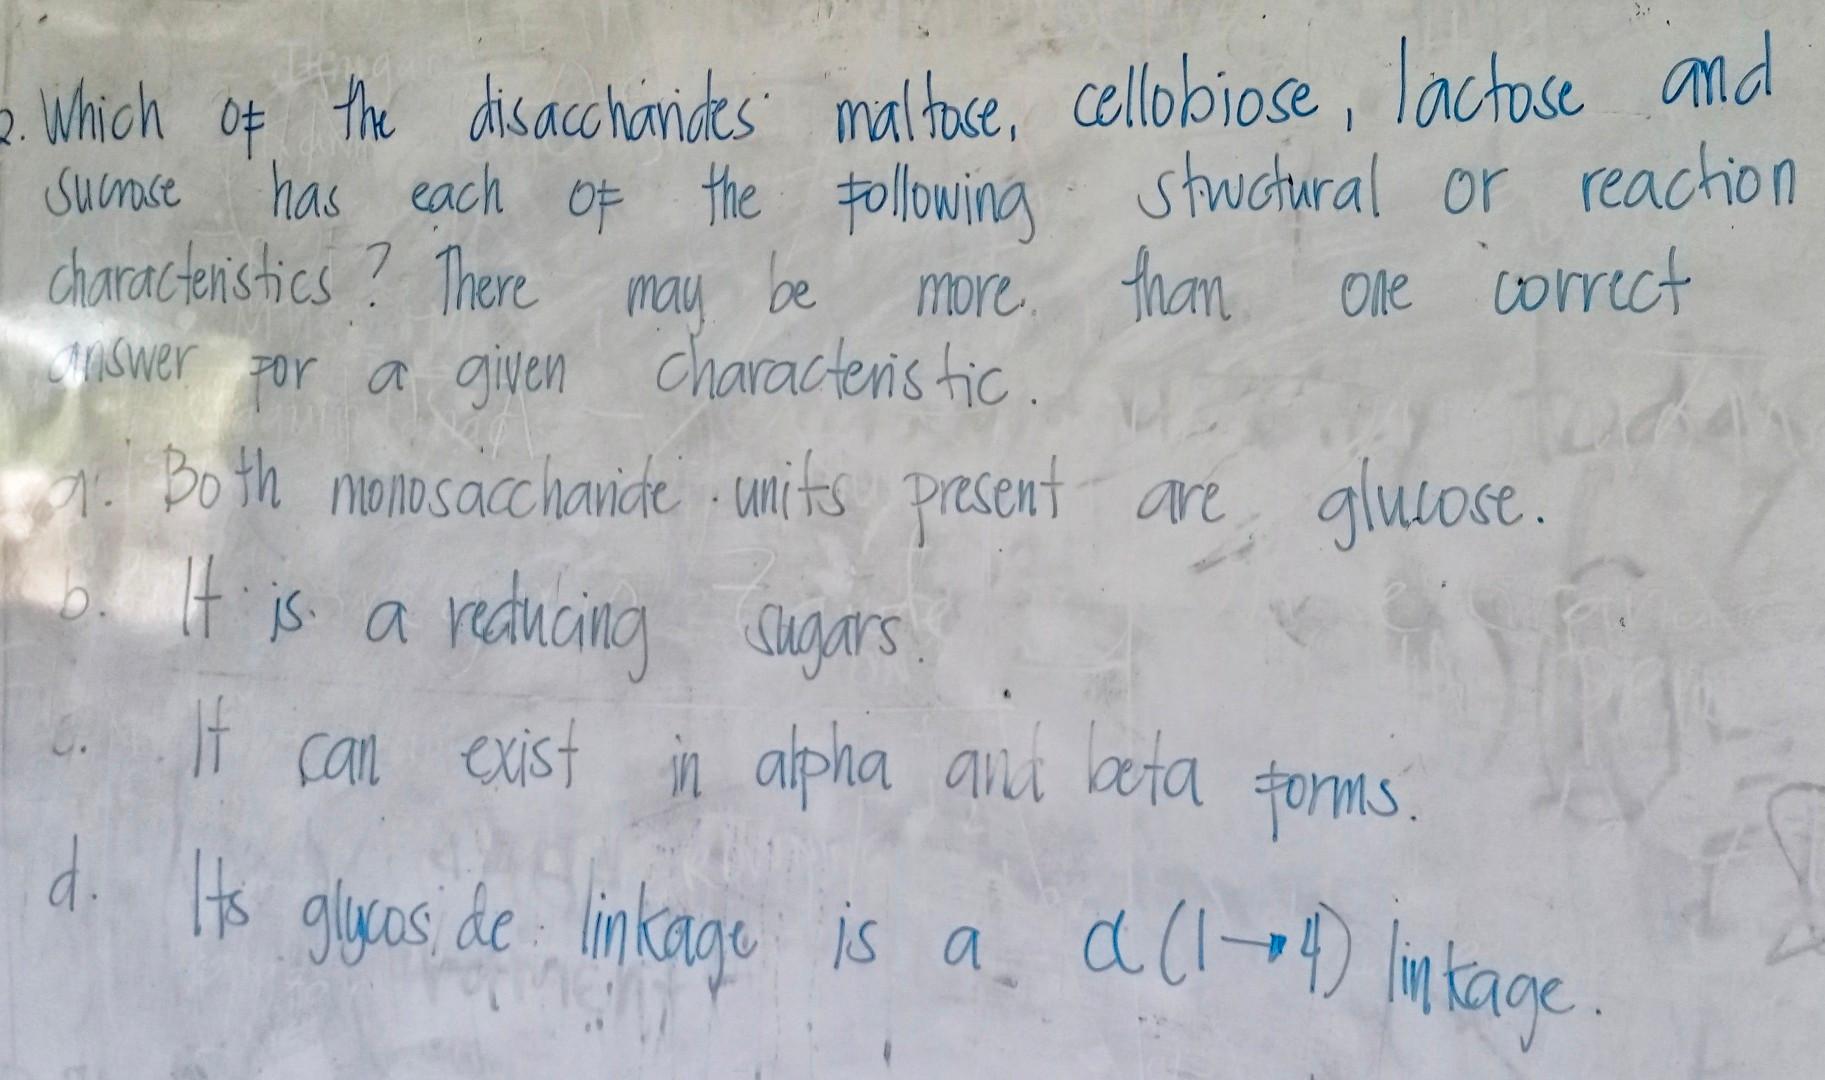 2. Which of the disaccharides maltose, cellobiose, lactose and
sucrose has each of the following structural or reaction
characteristics? There may be more than one correct
answer for a given characteristic.
a. Both monosaccharide units present are glucose.
b. It is a reducing sugars.
c. It can exist in alpha and beta forms.
d. Its glycoside linkage is a α(1→4) linkage.